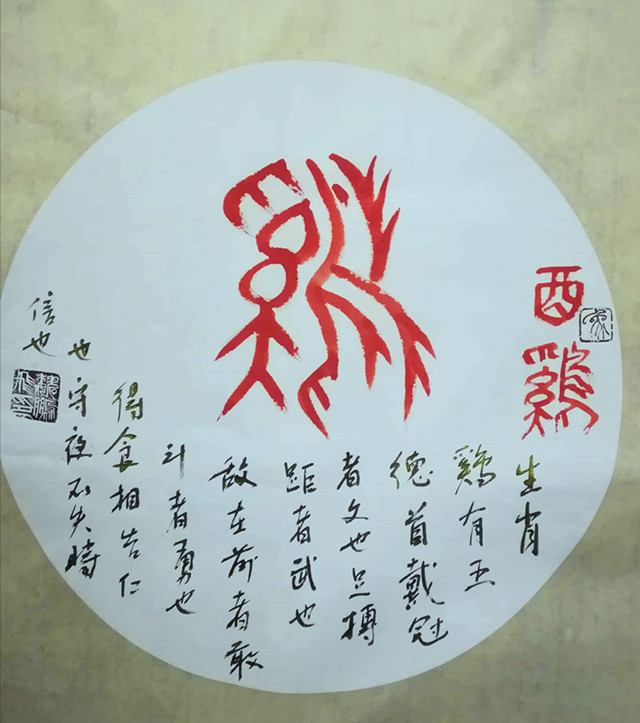 鷄
酉鷄
生肖
鷄有五
德首戴冠
者文也足搏
距者武也
敌在前者敢
斗者勇也
得食相告仁
也守夜不失時
信也